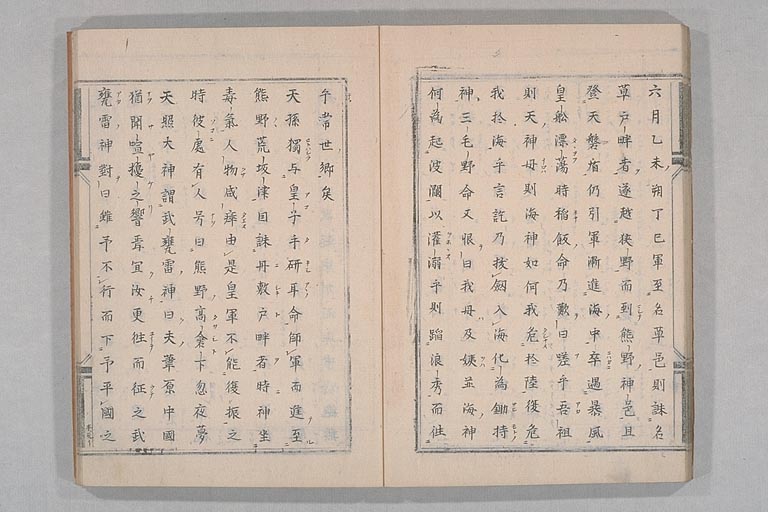 六月乙未朔丁巳軍至名草邑則誅名
草戸畔者遂越狭野而到熊野神邑且
登天磐盾仍引軍漸進海中卒遇暴風
皇舩漂蕩時稲飯命乃歎曰嗟乎吾祖
則天神母則海神如何我危於陸復危
我於海乎言訖乃抜劔入海化為鋤持
神三毛野命又恨曰我母及姨並海神
何為起波瀾以灌溺乎則蹈浪秀而往
乎常世郷矣
天孫獨与皇子手研耳命帥軍而進至
熊野荒坂津因誅丹敷戸畔者時神坐
毒氣人物咸瘁由是皇軍不能復振之
時彼處有人号曰熊野髙倉下忽夜夢
天照大神謂武甕雷神曰夫葦原中國
猶聞喧擾之響焉宜汝更徃而征之武
甕雷神對曰雖予不行而下予平國之